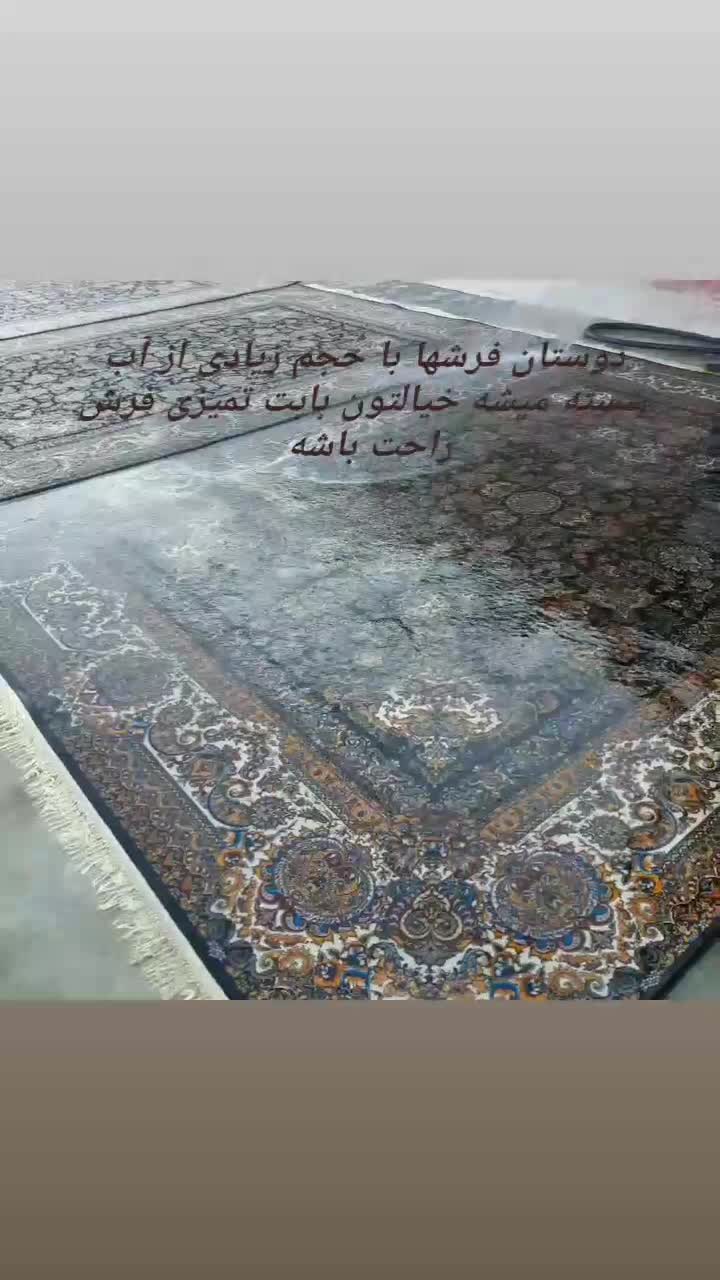 دوستان فرشها با حجم زیادی از آب
شسته میشه خیالتون بابت تمیزی فرش
راحت باشه